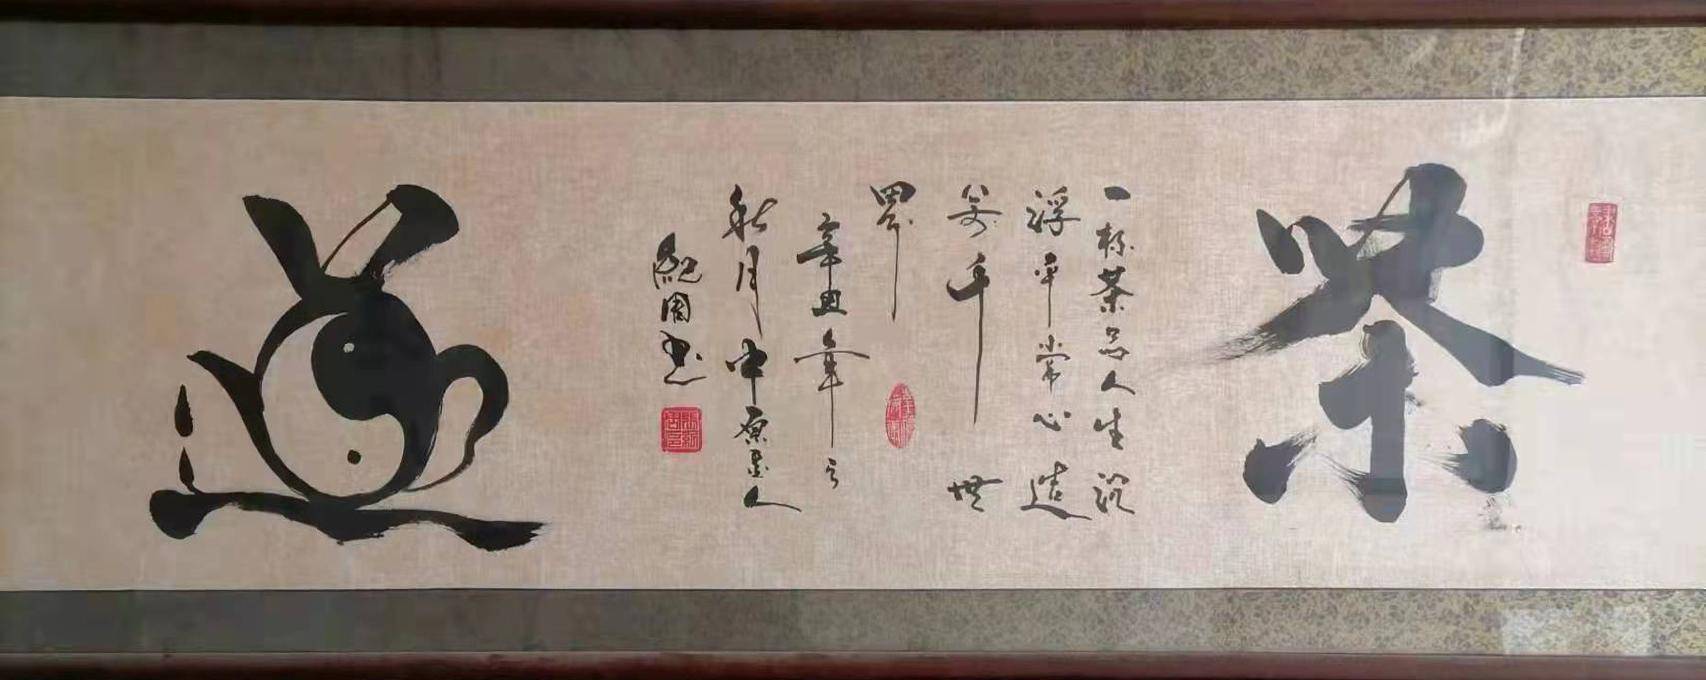 茶
一杯茶品人生沉
浮平常心造
万千世
界
辛丑年之
秋月中原
书
道